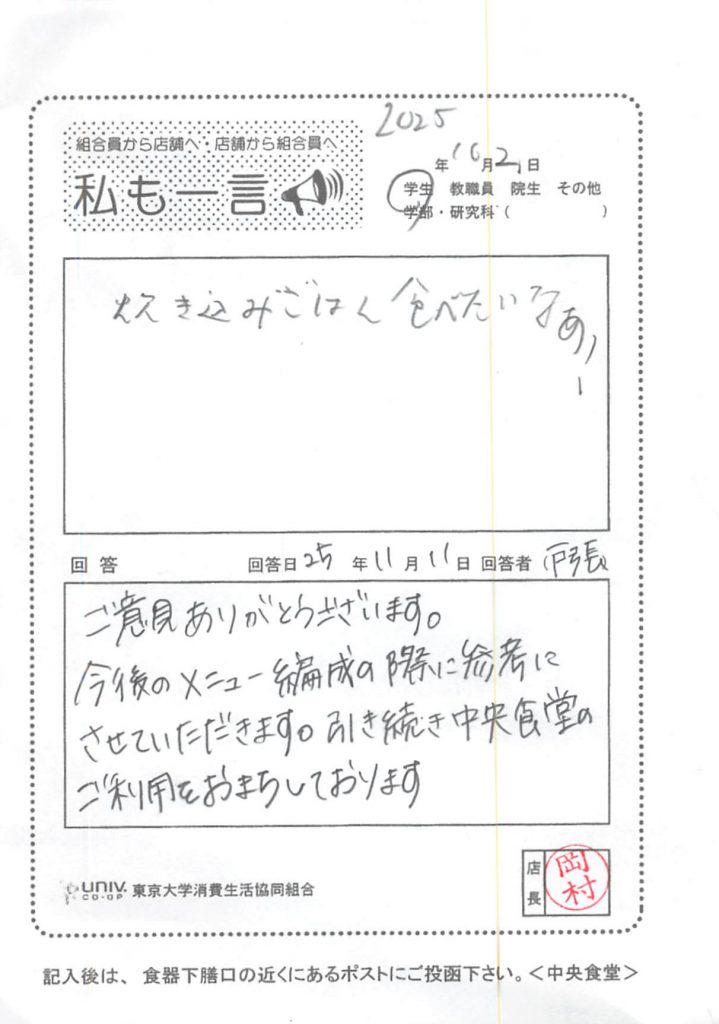 組合員から店舗へ・店舗から組合員へ
私も一言
2025年10月21日
学生 教職員 院生 その他
学部・研究科( )
炊き込みごはん食べたいなあ、ー
回答 回答日25年11月11日 回答者(戸張)
ご意見ありがとうございます。
今後のメニュー編成の際に参考に
させていただきます。引き続き中央食堂の
ご利用をおまちしております
店長 岡村
UNIV. CO-OP 東京大学消費生活協同組合
記入後は、食器下膳口の近くにあるポストにご投函下さい。<中央食堂>